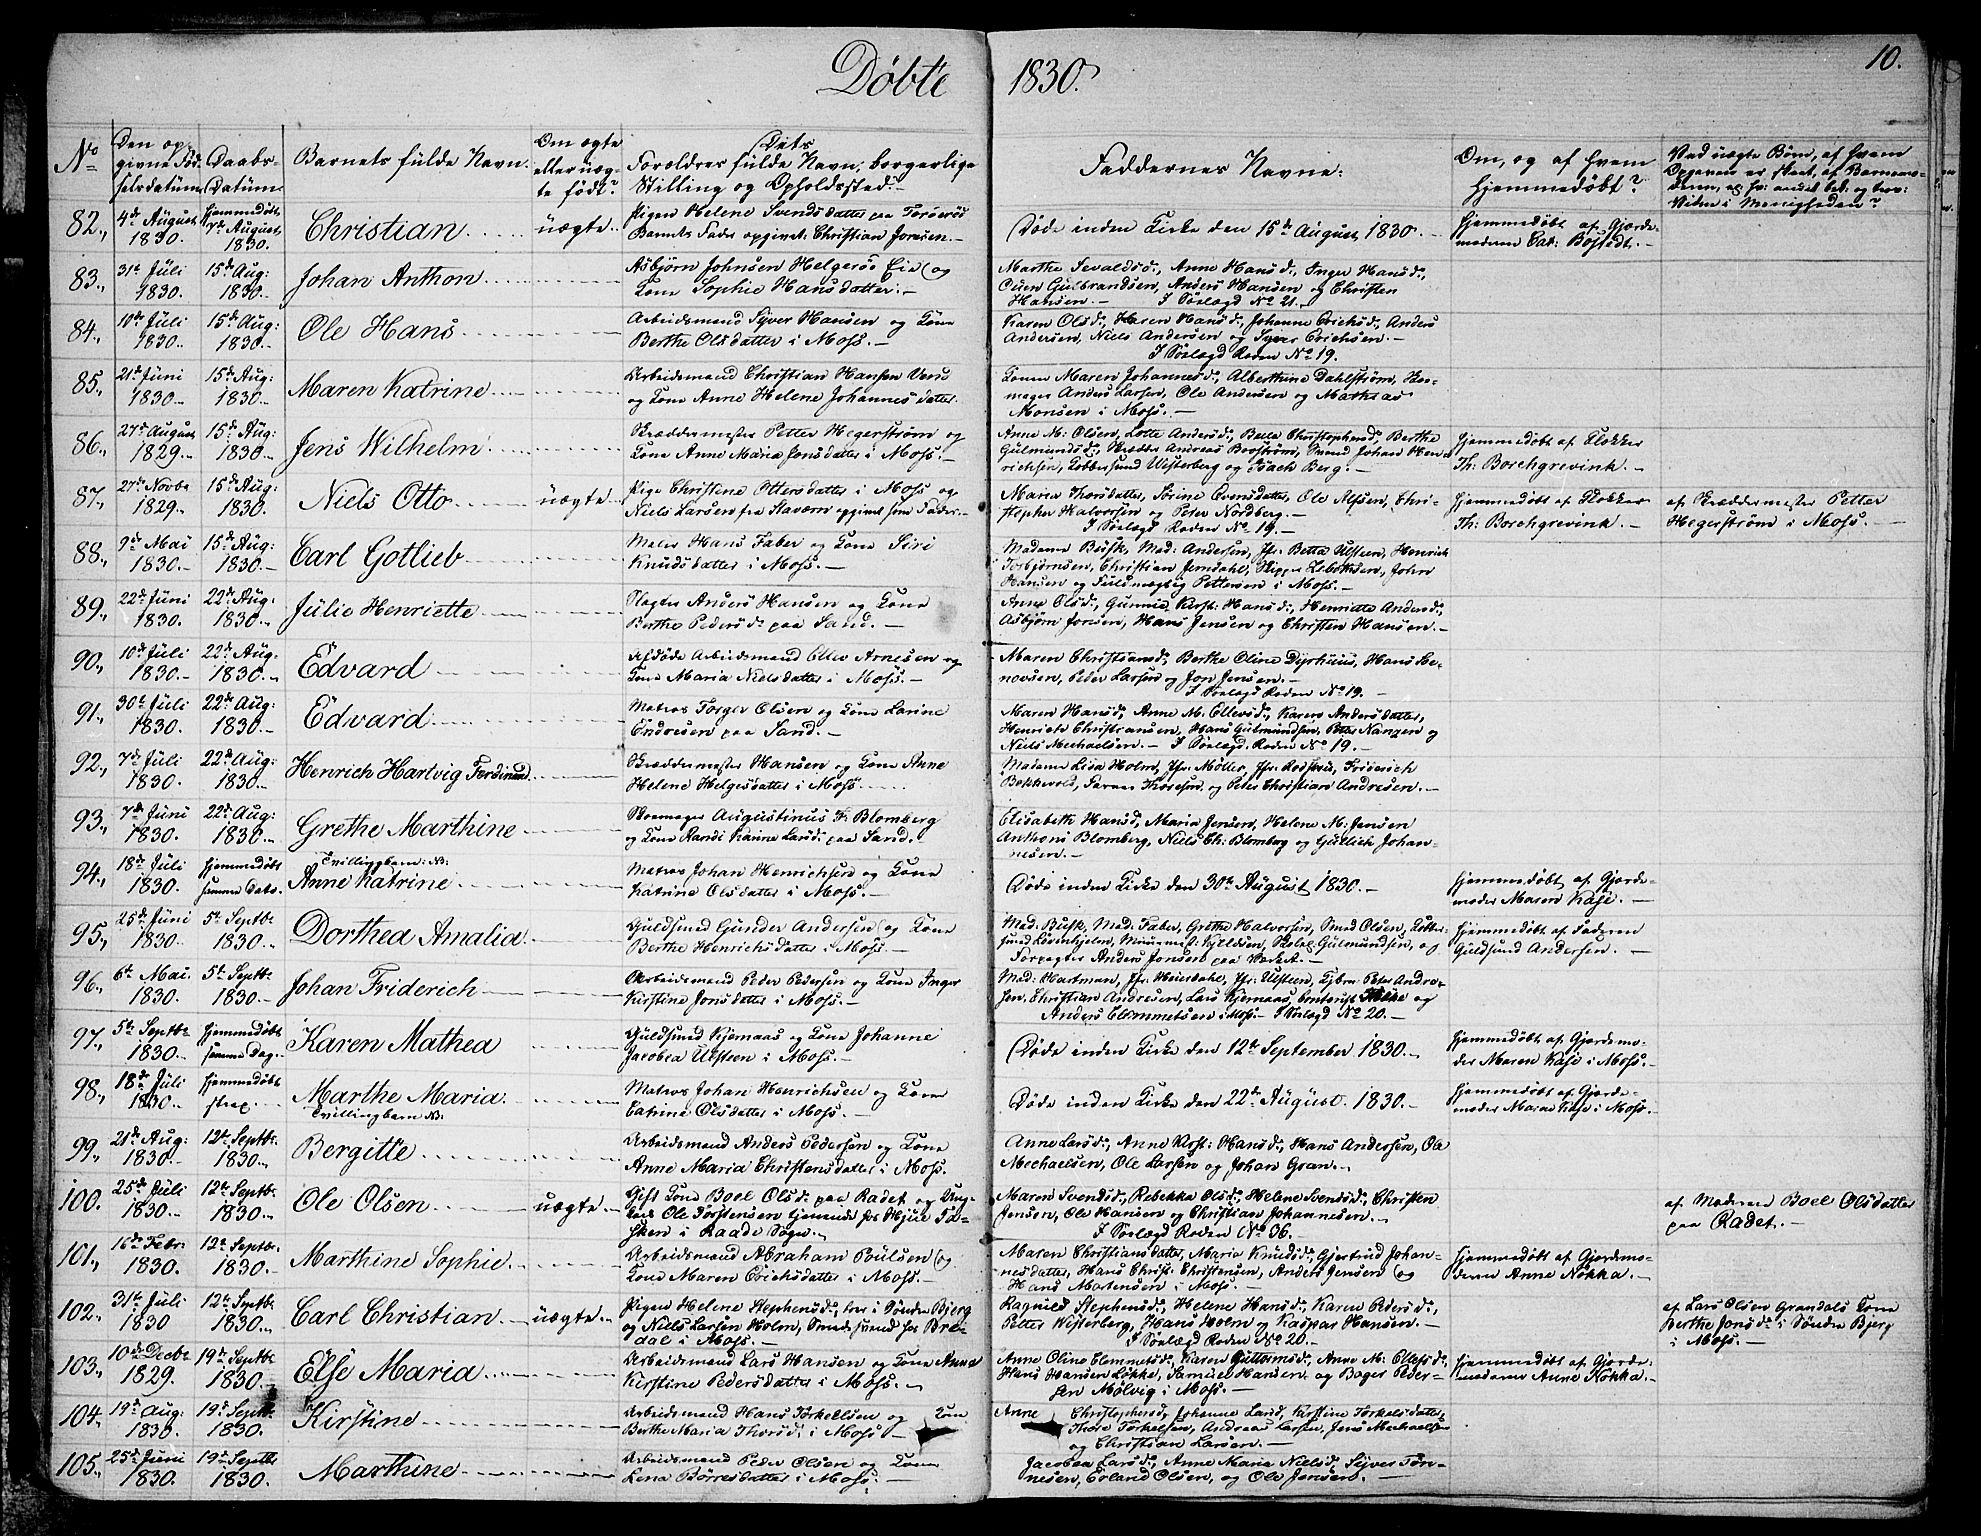 Døbte 1830.
10.
No
Den op-
givne Fød-
selsdatum.
Daabs-
Datum
Barnets fulde Navn.
Om ægte
eller uæg-
te født?
Dets
Forældres fulde Navn, borgerlige
Stilling og Opholdssted.-
Faddernes Navne:
Om, og af hvem
hjemmedøbt?
82., 4de August 1830. hjemmedøbt August 1830. Christian uægte
Pigen Helene Svendsdatter paa
Barnets Fader opgivet: Christian Jensen.-
Døde inden Kirke den 15de August 1830.-
hjemmedøbt af Gjorde-
moderen Cat:
83., 31te Juli 1830. 15de Aug: 1830. Johan Anthon
Asbjørn Johnsen Helgerøe Eie og
Kone Sophie Hansdatter.-
Marthe Sevaldsd:, Anne Hansd:, Inger Hansd:,
Gulbrandsen, Anders Hansen og Christen
Hansen.- No 21.
84., 10de Juli 1830. 15de Aug: 1830. Ole Hans
Arbeidsmand Syver Hansen og Kone
Berthe Olsdatter i Moss.-
Karen Olsd:, Maren Hansd:, Johanne Erichsd:, Anders
Andersen, Niels Andersen og Syver Erichsen.-
Roden No 19.
85., 21de Juni 1830. 15de Aug: 1830. Maren Katrine
Arbeidsmand Christian Hansen
og Kone Anne Helene Johannesdatter.
Konen Maren Johannesd:, Alberthine Dahlstrøm, Skoe-
mager Anders Larsen, Ole Andersen og Mathias
Monsen i Moss.-
86., 27de August 1829. 15de Aug: 1830. Jens Wilhelm
Skræddermester Petter Hegerstrøm og
Kone Anne Maria Jonsdatter i Moss.-
Anne M: Olsen, Lotte Andersd:, Christophersd:, Berthe
Gulmundsd:, Andreas Smed Johan Hen-
richsen, Kobbersmed Westerberg og Isach Berg.-
hjemmedøbt af Klokker
Th: Borchgrevink.-
87., 27de Novbr 1829. 15de Aug: 1830. Niels Otto uægte
Pige Christine Ottersdatter i Moss og
Niels Larsen fra Stavern opgivet som Fader.
Maren Thorsdatter, Sørine Evensdatter, Ole Alfsen, Chri-
stopher Halvorsen og Peter Nordberg.-
Roden No 19.-
hjemmedøbt af Klokker
Th: Borchgrevink.-
af Skræddermester Petter
Hegerstrøm i Moss.-
88., 9de Mai 1830. 15de Aug: 1830. Carl Gotlieb
Maler Hans Faber og Kone Siri
Knudsdatter i Moss.-
Madame Busk, Mad: Andersen, Jfr: Betta Ulsteen, Henrich
Torbjørnsen, Christian Jemdahl, John
Hansen og Fuldmægtig Pettersen i Moss.-
89., 22de Juni 1830. 22de Aug: 1830. Julie Henriette
Slagter Anders Hansen og Kone
Berthe Pedersd: paa Sand.-
Anne Olsd:, Kirst: Hansd:, Henriette Andersd:,
Asbjørn Jonsen, Hans Jensen og Christen Hansen.-
90., 10de Juli 1830. 22de Aug: 1830. Edvard
Afdøde Arbeidsmand Ellev Arnesen og
Kone Maria Nielsdatter i Moss.-
Maren Christiansd:, Berthe Oline Dyrhuus, Hans
Peder Larsen og Jon Jensen.-
Roden No 19.-
91., 30te Juli 1830. 22de Aug: 1830. Edvard
Matros Torger Olsen og Kone Larine
Endresen paa Sand.-
Maren Hansd:, Anne M. Ellevsd:, Karen Andersdatter,
Henrich Christiansen, Hans Gulmundsen, og
Niels Michaelsen.- Roden No 19.-
92., 7de Juli 1830. 22de Aug: 1830. Henrich Hartvig Ferdinand
Skræddermester Hansen og Kone Anne
Helene Helgesdatter i Moss.
Madame Lisa Holm, Jfr: Møller, Friderich
Bekkevold, Thoresen og Peter Christian Andresen.-
93., 7de Juni 1830. 22de Aug: 1830. Grethe Marthine
Skoemager Augustinus F: Blomberg
og Kone Randi Karine Larsd: paa Sand.-
Elisabeth Hansd:, Maria Jensen, Helene M: Jensen
Anthoni Blomberg, Niels Ch: Blomberg og Gullich Johan-
nesen.-
94., 18de Juli 1830. hjemmedøbt samme Dato. Tvillingbarn: NB: Anne Katrine
Matros Johan Henrichsen og Kone
Katrine Olsdatter i Moss.-
Døde inden Kirke den 30te August 1830.-
hjemmedøbt af Gjorde-
moder Maren Kase.-
95., 25de Juni 1830. 5te Septbr 1830. Dorthea Amalia
Guldsmed Gunder Andersen og Kone
Berthe Henrichsdatter i Moss.-
Mad: Busk, Mad: Faber, Grethe Halvorsen, Smed Olsen, Kobber-
smed og
Forpagter Anders Jonsen paa Værket.-
hjemmedøbt af Faderen
Guldsmed Andersen.-
96., 6te Mai 1830. 5te Septbr 1830. Johan Friderich
Arbeidsmand Peder Pedersen og Kone Inger
Kirstine Jonsdatter i Moss.-
Mad: Hartman, Jfr: Jfr: Ulsteen, Peter Andre-
sen, Christian Andresen, Lars Kjernaas, og
Anders Clemmetsen i Moss.- No 20.-
97., 5te Septbr 1830. hjemmedøbt samme Dag. Karen Mathea
Guldsmed Kjernaas og Kone Johanne
Jacobea Ulsteen i Moss.-
Døde inden Kirke den 12te September 1830.-
hjemmedøbt af Gjordemo-
der Maren Kase i Moss.
98., 18de Juli 1830. hjemmedøbt strax. Marthe Maria. Tvillingbarn NB.
Matros Johan Henrichsen og Kone
Catrine Olsdatter i Moss.-
Døde inden Kirke den 22de August 1830.-
hjemmedøbt af Gjorde-
moder Maren Kase i Moss.
99., 21de Aug: 1830. 12te Septbr: 1830. Bergitte
Arbeidsmand Anders Pedersen og Kone
Anne Maria Christensdatter i Moss.
Anne Larsd:, Anne Kirst: Hansd:, Hans Andersen, Ole
Mechaelsen, Ole Larsen og Johan Gran.-
100. 25de Juli 1830. 12te Septbr 1830. Ole Olsen uægte
Gift Kone Boel Olsd: paa Radet og Ung-
karl Ole Torstensen tjenende hos
i Raade Sogn.
Maren Svendsd:, Rebekka Olsd:, Helene Svendsd:, Christen
Jensen, Ole Hansen og Christian Johannesen.-
Roden No 36.
af Moderen Boel Olsdatter
paa Radet.-
101., 16de Febr: 1830. 12te Septbr: 1830. Marthine Sophie
Arbeidsmand Abraham Poulsen og
Kone Maren Erichsdatter i Moss.-
Maren Christiansdatter, Maria Knudsd:, Gjertrud Johan-
nesdatter, Hans Christ: Christensen, Anders Jensen og
Hans Mortensen i Moss.-
hjemmedøbt af Gjordemo-
deren Anne Nøkka.-
102. 31te Juli 1830 12te Septbr 1830. Carl Christian uægte
Pigen Helene Stephensd:, boer i Søndre Bjerg
og Niels Larsen Holm, Smedsvend hos Bre-
dal i Moss.-
Ragnild Stephensd:, Helene Hansd:, Karen Pedersd:,
Petter Westerberg, Hans Holm og Kaspar Hansen.-
Roden No 20.-
af Lars Olsen Grandals Kone
Berthe Jonsd: i Søndre Bjerg
i Moss.-
103. 10de Decbr 1829. 19de Septbr 1830. Else Maria
Arbeidsmand Lars Hansen og Kone Anne
Kirstine Pedersdatter i Moss.-
Anne Oline Clemmetsd:, Karen Guttormsd:, Anne M: Ellefsd:,
Hans Hansen Løkke, Samuel Hansen og Boger Peder-
sen Mølvig i Moss.-
hjemmedøbt af Gjorde-
moderen Anne Nøkka.-
104. 19de Aug: 1830. 19de Septbr 1830. Kirstine
Arbeidsmand Hans Torkelsen og Kone
Berthe Maria Thorsd: i Moss.-
Anne Christophersd:, Johanne Larsd:, Kirstine Torkelsdatter,
Thore Torkelsen, Andreas Larsen, Jens Mechaelsen
og Christian Larsen.-
105., 25de Juni 1830. 19de Septbr 1830. Marthine
Arbeidsmand Peder Olsen og Kone
Lena Børresdatter i Moss.-
Jacobea Larsd:, Anne Maria Nielsd:, Syver Tør-
nesen, Erland Olsen, og Ole Jensen.-